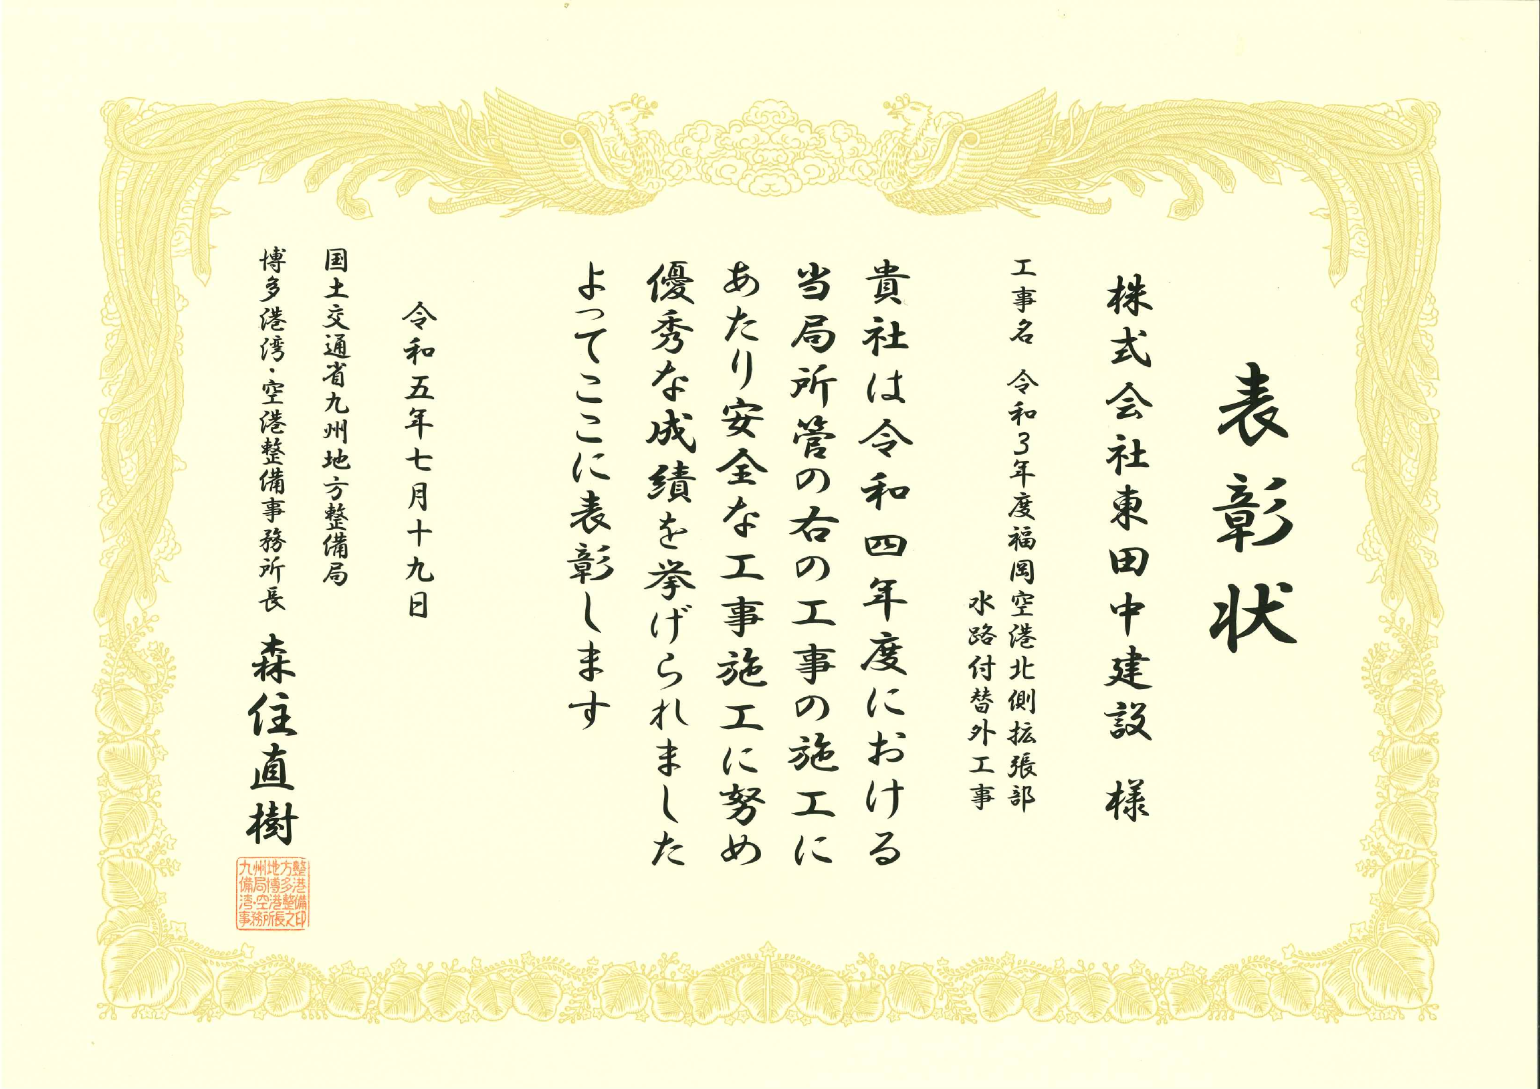 表彰状
株式会社東田中建設 様
工事名 令和3年度福岡空港北側拡張部
水路付替外工事
貴社は令和四年度における
当局所管の右の工事の施工に
あたり安全な工事施工に努め
優秀な成績を挙げられました
よってここに表彰します
令和五年七月十九日
国土交通省九州地方整備局
博多港湾・空港整備事務所長 森住直樹
九州地方整
備局博多港
湾・空港整備
事務所長之印